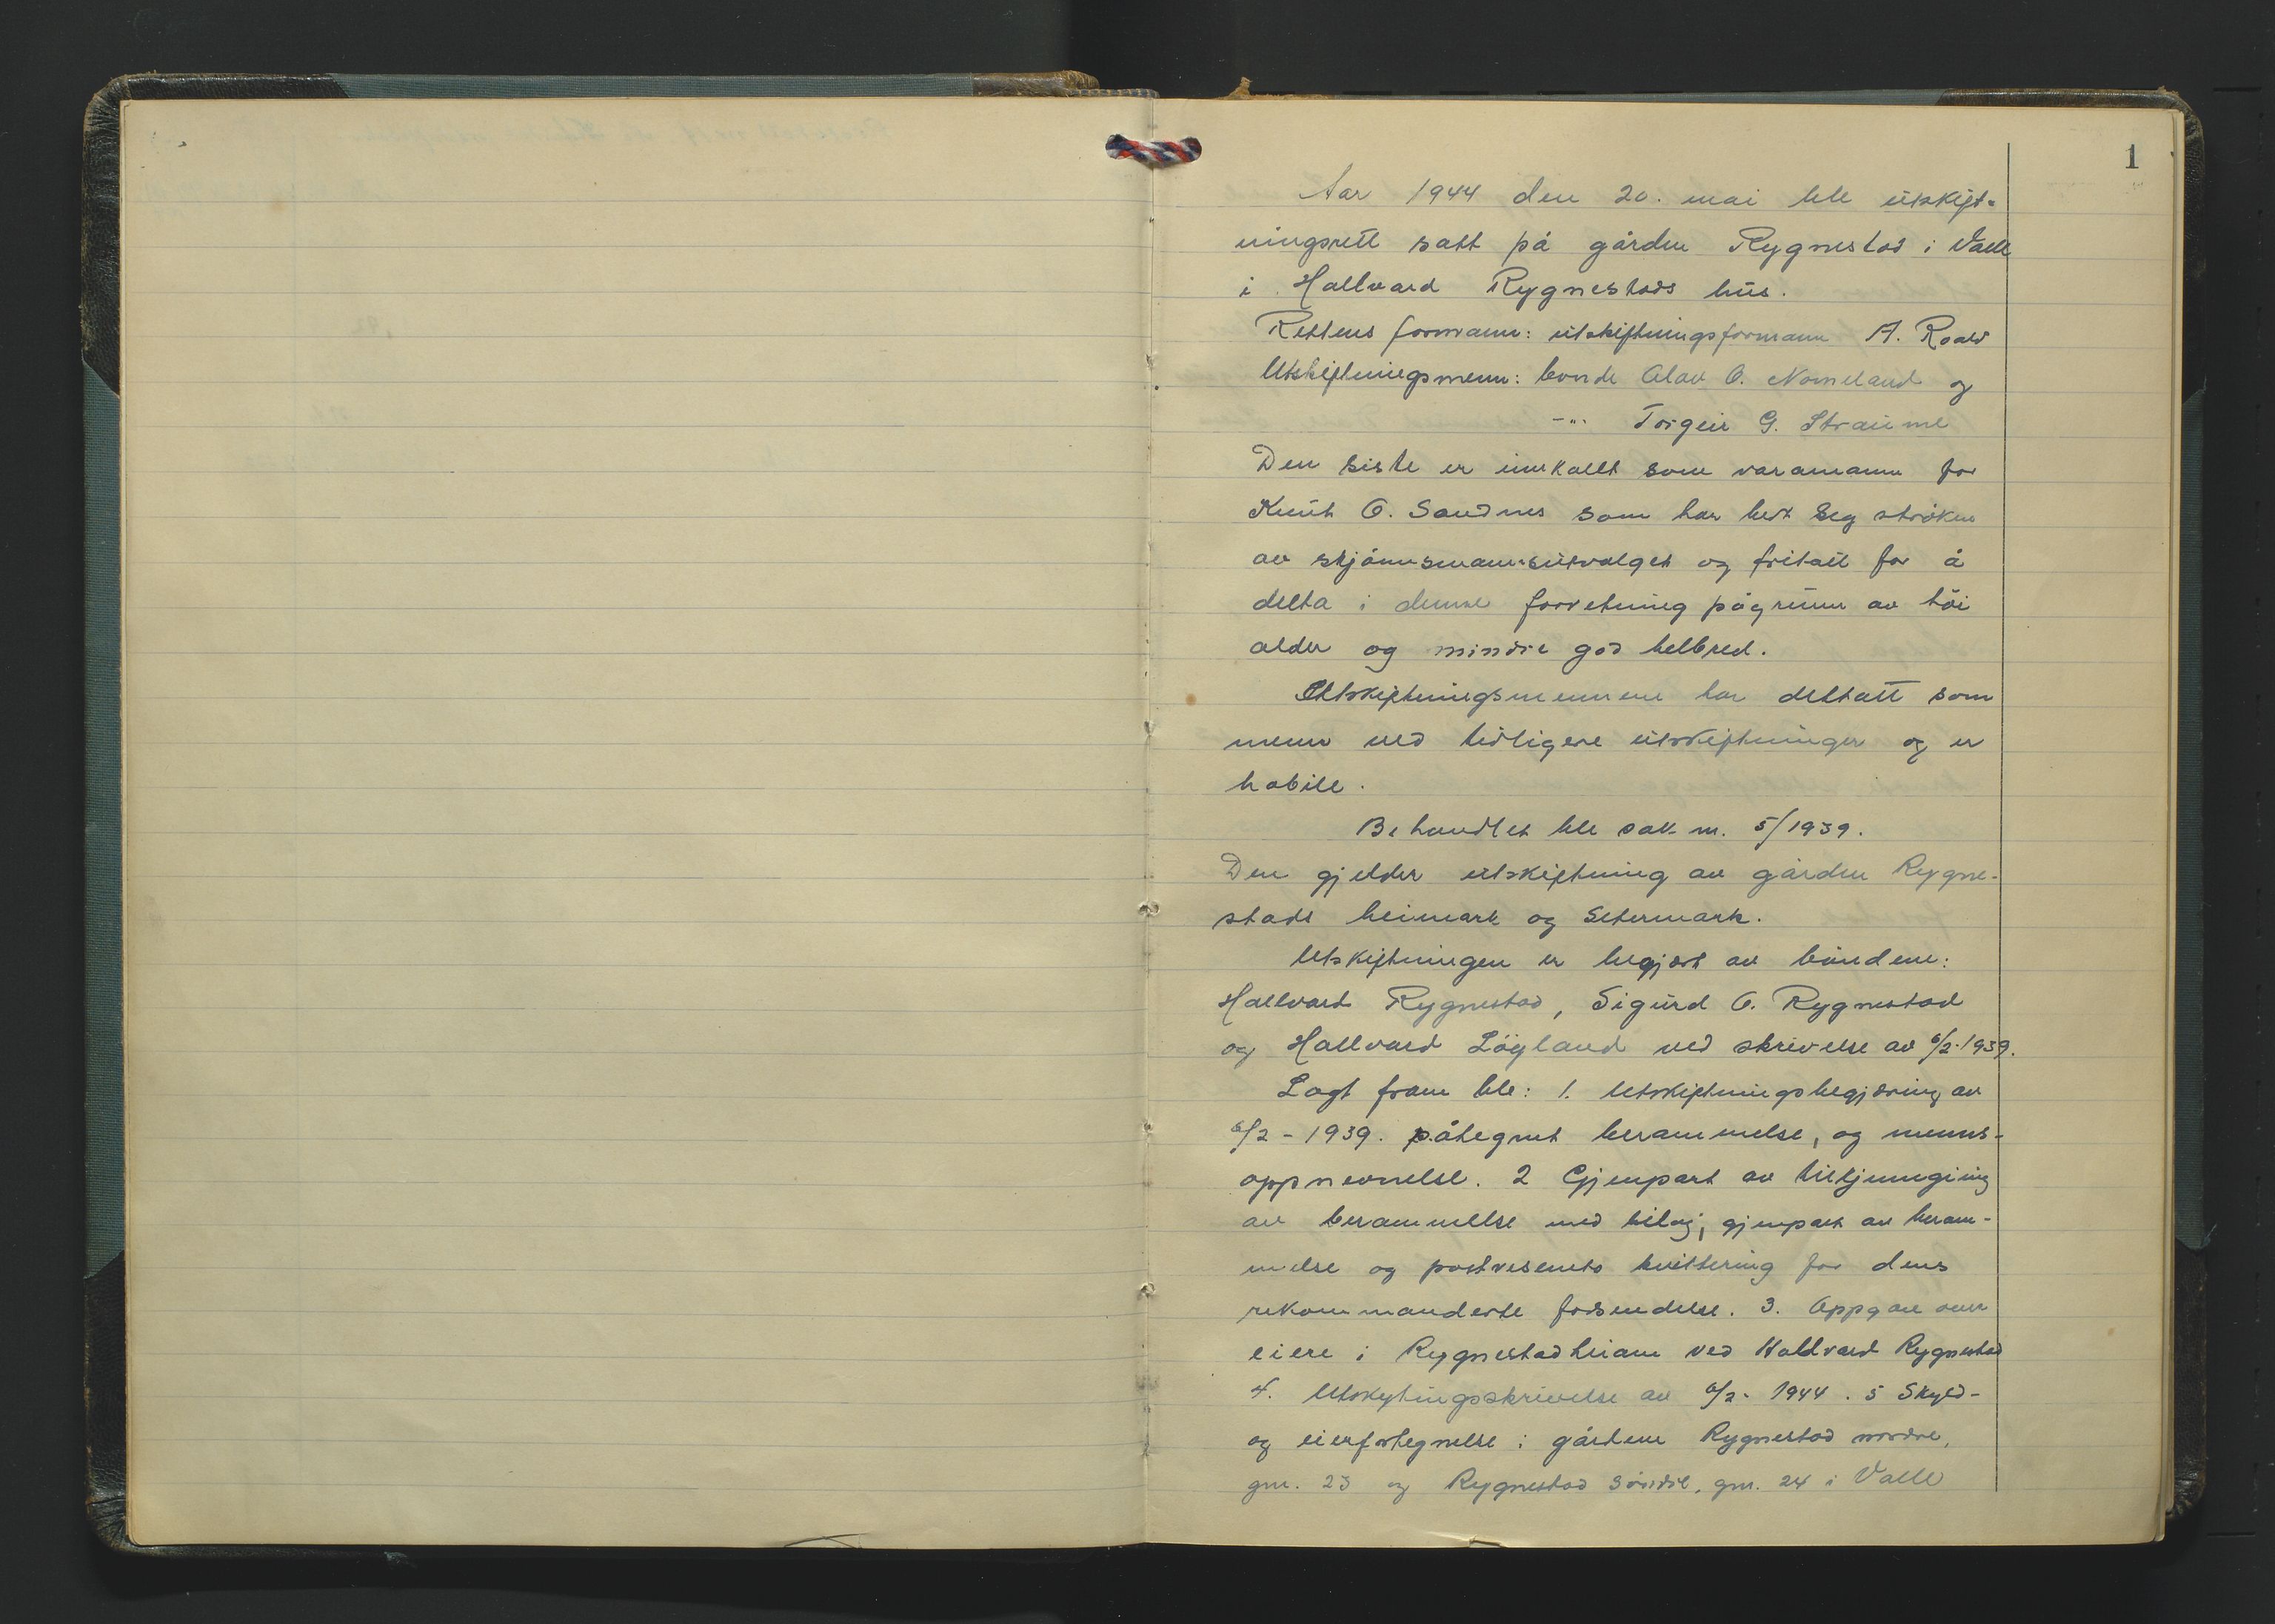 1
Aar 1944 den 20. mai ble utskift-
ningsrett satt på gården Rygnestad i Valle
i Hallvard Rygnestads hus.
Rettens formann: utskiftningsformann A. Roald
Utskiftningsmenn: bonde Olav O. Nomeland og
-"- Torgeir G. Straume
Den siste er innkallt som varamann for
Knut O. Sandnes som har bedt seg strøken
av skjønnsmannsutvalget og fritatt for å
delta i denne forretning pågrunn av høi
alder og mindre god helbred.
Utskiftningsmennene har deltatt som
menn ved tidligere utskiftninger og er
habile.
Behandlet ble sak nr. 5/1939.
Den gjelder utskiftning av gården Rygne-
stads heimark og setermark.
Utskiftningen er begjært av bøndene:
Hallvard Rygnestad, Sigurd O. Rygnestad
og Hallvard Løgland ved skrivelse av 6/2-1939.
Lagt fram ble: 1. Utskiftningsbegjæring av
6/2-1939. påtegnet berammelse, og menns-
oppnevnelse. 2 Gjenpart av tilkjennegiving
av berammelse med bilag, gjenpart av beram-
melse og postvesenets kvittering for dens
rekommanderte forsendelse. 3. Oppgave over
eiere i Rygnestadheiane ved Hallvard Rygnestad
4. Utskytingsskrivelse av 6/2-1944. 5 Skyld-
og eierfortegnelse i gårdene Rygnestad nordre,
gnr. 23 og Rygnestad søndre, gnr. 24 i Valle